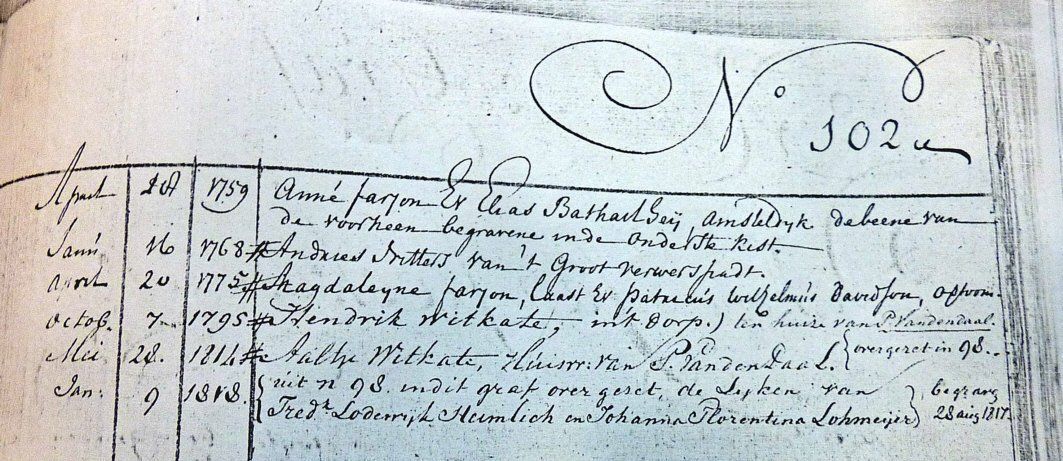 No 102
April 28 1759 Anné farjon Ev Elias Bathail Seij, amsteldyk de beene van
de voorheen begravene in de onderste kist.
Janú 16 1768 # Andries Ritters van 't Groot verwerspadt.
april 20 1775 # Magdaleyne farjon, laast Ev Wilhelmús Davidson, op toom.
octob. 7 1795 # Hendrik Witkate, in't dorp. ten huize van P. Vandendaal.
Mei 28. 1814 # Aaltje Witkate, Húisvr: van P. Vanden Daal. { overgezet in 98.
Jan: 9 1818. { úit n 98 in dit graf over gezet, de Lijken van
Fredk Lodewijk Heimlich en Johanna Florentina Lohmeijer } begrav
28 aug 1817.